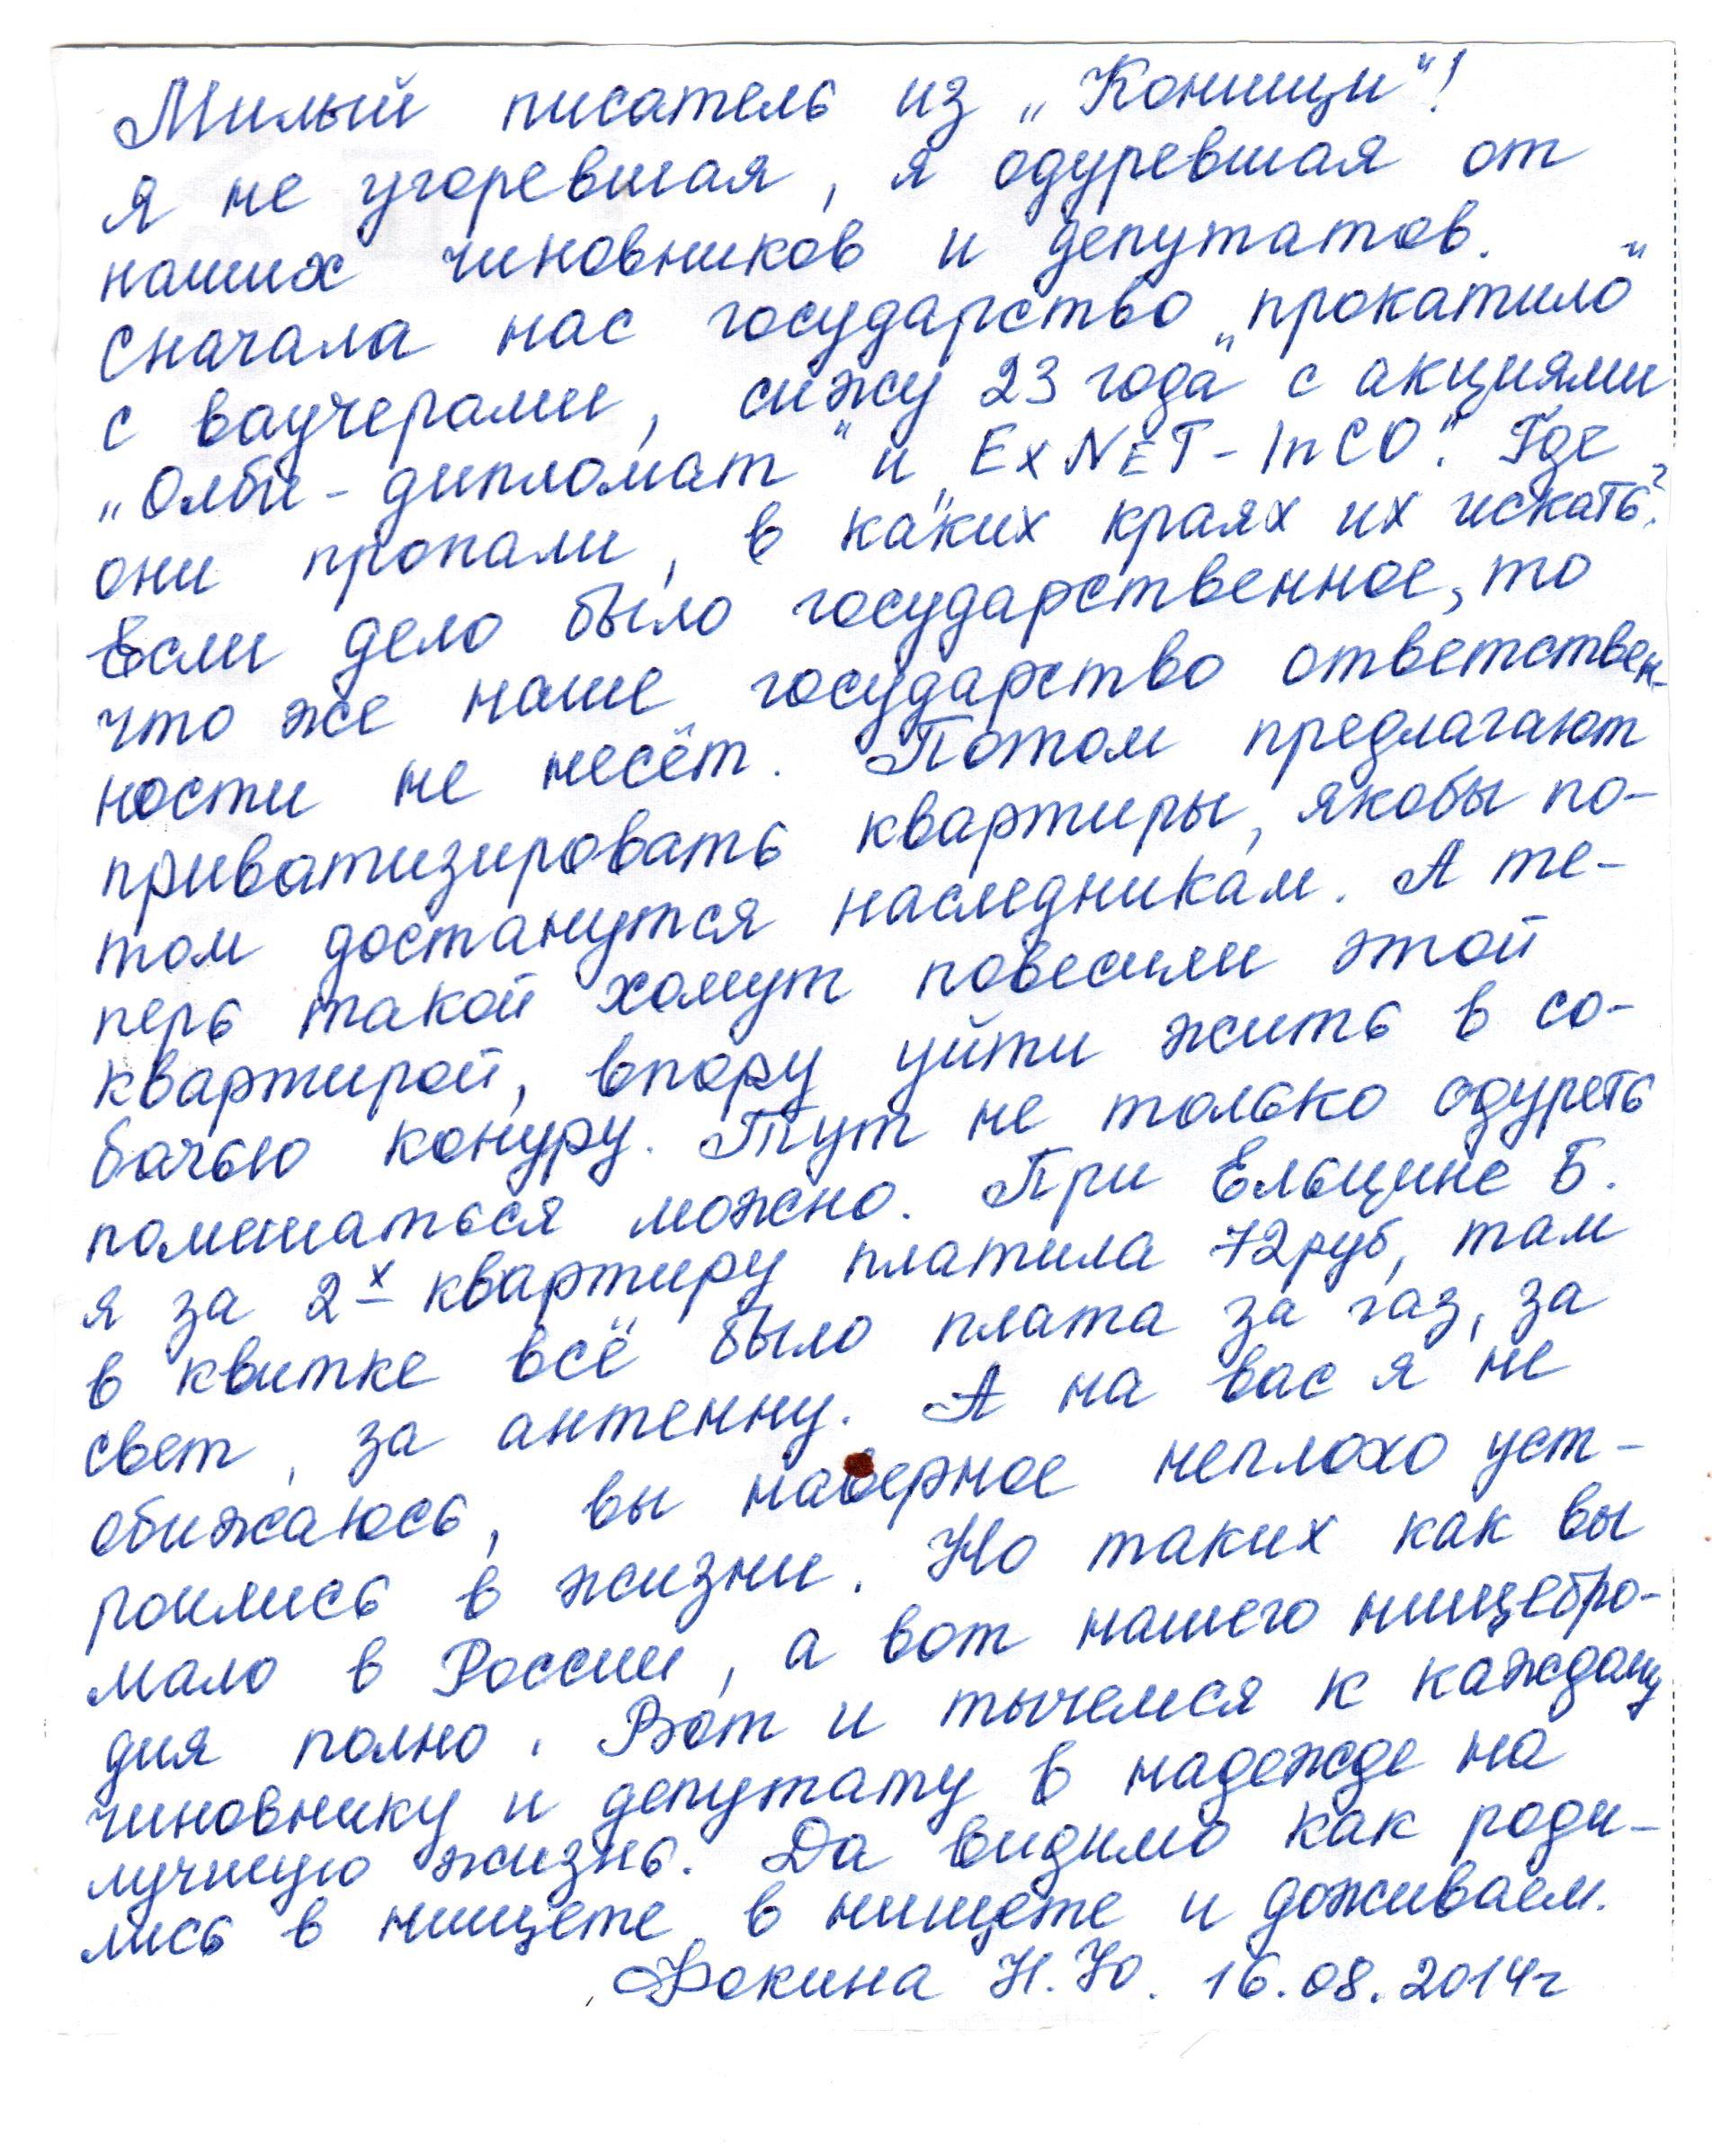 Милый писатель из „Конищи"!
Я не угоревшая, я одуревшая от
наших чиновников и депутатов.
Сначала нас государство „прокатило"
с ваучерами, сижу 23 года с акциями
„Олби-дипломат" и „ExNET-InCO". Где
они пропали, в каких краях их искать?
Если дело было государственное, то
что же наше государство ответствен-
ности не несёт. Потом предлагают
приватизировать квартиры, якобы по-
том достанутся наследникам. А те-
перь такой хомут повесили этой
квартирой, впору уйти жить в со-
бачью конуру. Тут не только одуреть
помешаться можно. При Ельцине Б.
я за 2х квартиру платила 72руб, там
в квитке всё было плата за газ, за
свет, за антенну. А на вас я не
обижаюсь, вы наверное неплохо уст-
роились в жизни. Но таких как вы
мало в России, а вот нашего нищебро-
дия полно. Вот и тычемся к каждому
чиновнику и депутату в надежде на
лучшую жизнь. Да видимо как роди-
лись в нищете в нищете и доживаем.
Фокина Н.Ю. 16.08.2014г